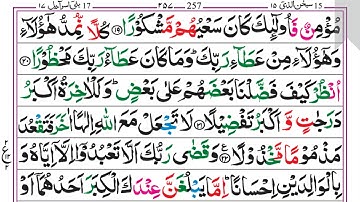 سبحن الذی ١٥ 257 ٢٥٧ 17 بنی اسرآءیل ١٧
مُؤْمِنٌ فَاُولٰٓئِكَ كَانَ سَعْیُهُمْ مَّشْكُوْرًا ﴿۱۹﴾ كُلًّا نُّمِدُّ هٰۤؤُلَآءِ
وَهٰۤؤُلَآءِ مِنْ عَطَآءِ رَبِّكَ ؕ وَمَا كَانَ عَطَآءُ رَبِّكَ مَحْظُوْرًا ﴿۲۰﴾
اُنْظُرْ كَیْفَ فَضَّلْنَا بَعْضَهُمْ عَلٰی بَعْضٍ ؕ وَلَلْاٰخِرَةُ اَكْبَرُ
دَرَجٰتٍ وَّاَكْبَرُ تَفْضِیْلًا ﴿۲۱﴾ لَا تَجْعَلْ مَعَ اللّٰهِ اِلٰهًا اٰخَرَ فَتَقْعُدَ
مَذْمُوْمًا مَّخْذُوْلًا ﴿۲۲﴾ وَقَضٰی رَبُّكَ اَلَّا تَعْبُدُوْۤا اِلَّاۤ اِیَّاهُ وَ
بِالْوَالِدَیْنِ اِحْسَانًا ؕ اِمَّا یَبْلُغَنَّ عِنْدَكَ الْكِبَرَ اَحَدُهُمَاۤ اَوْ